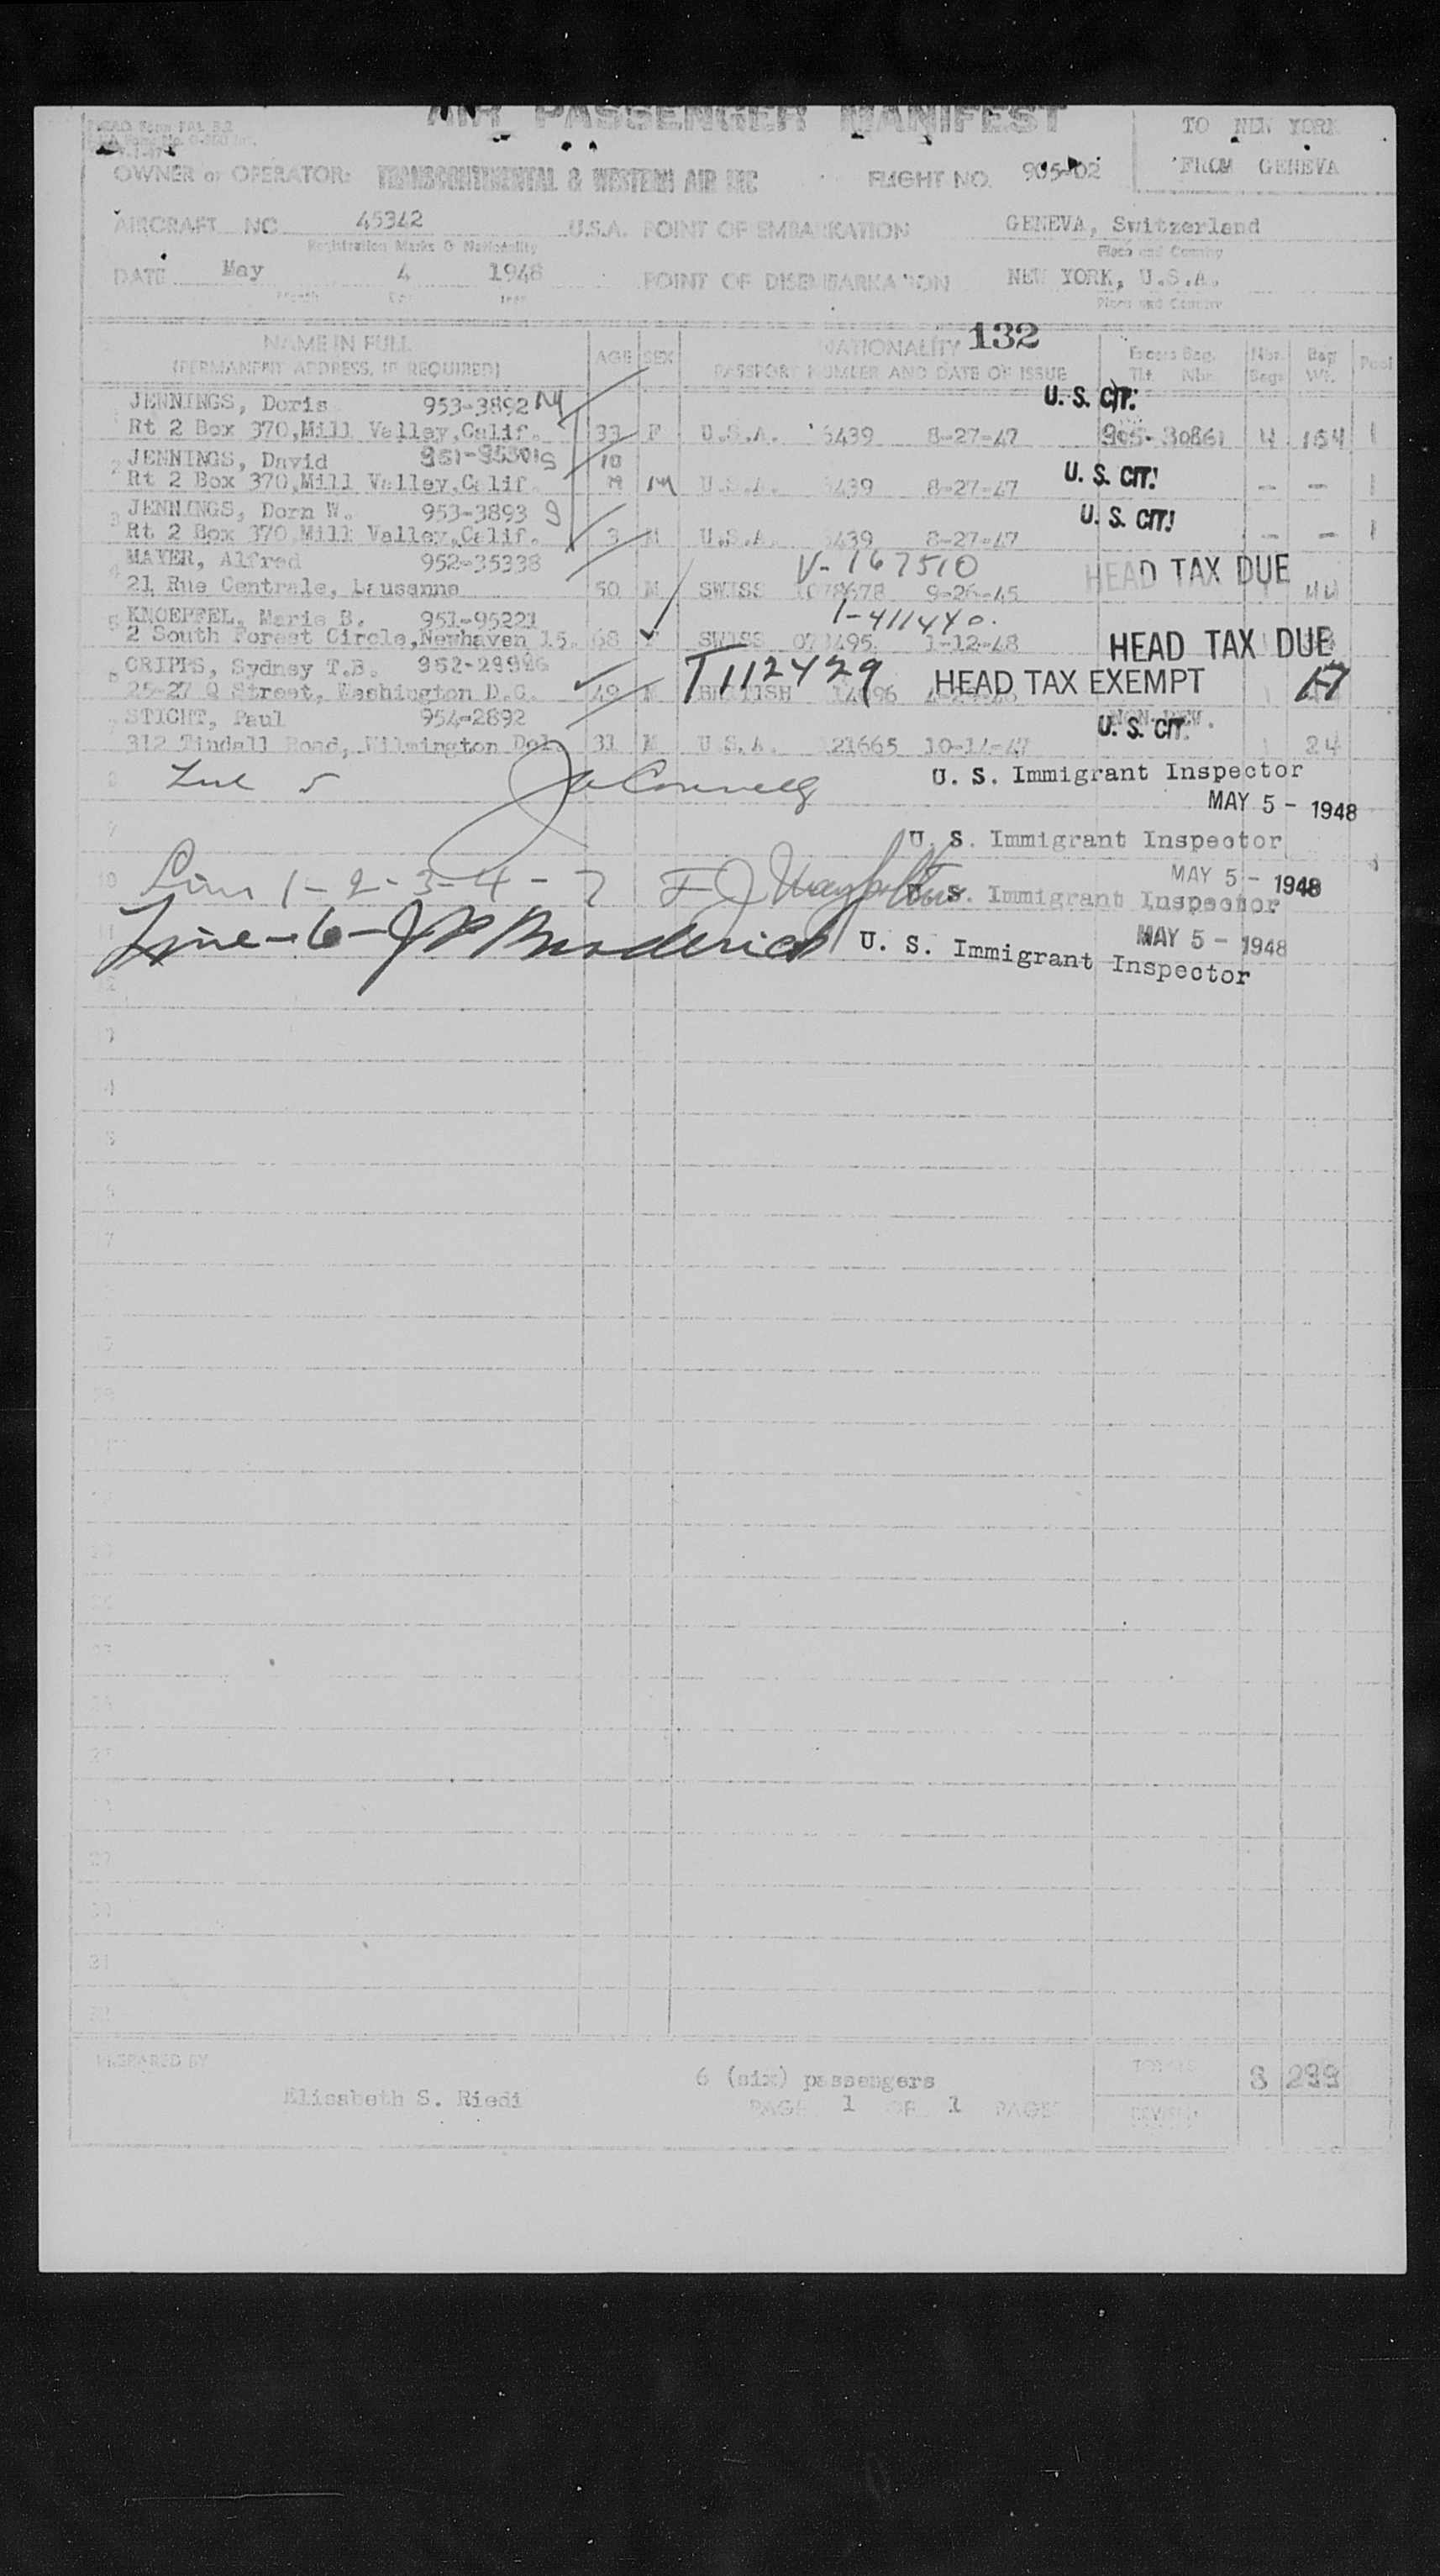 AIR PASSENGER MANIFEST
TO NEW YORK
FROM GENEVA
OWNER or OPERATOR: TRANSCONTINENTAL & WESTERN AIR INC FLIGHT NO. 905-02
AIRCRAFT NO 45342 U.S.A. POINT OF EMBARKATION GENEVA, Switzerland
Registration Marks & Nationality Place and Country
DATE May 4 1948 POINT OF DISEMBARKATION NEW YORK, U.S.A.
Month Day Year Place and Country
132
NAME IN FULL AGE SEX NATIONALITY Excess Bag. Nbr. Bag
(PERMANENT ADDRESS, IF REQUIRED) PASSPORT NUMBER AND DATE OF ISSUE Tkt. Nbr. Bags Wt.
JENNINGS, Doris 953-3892 U. S. CIT.
Rt 2 Box 370, Mill Valley, Calif. 33 F U.S.A. 6439 8-27-47 905-30861 4 164 1
2 JENNINGS, David 10
Rt 2 Box 370, Mill Valley, Calif. M U.S.A. 439 8-27-47 U. S. CIT. - - 1
3 JENNINGS, Dorn W. 953-3893 U. S. CIT.
Rt 2 Box 370 Mill Valley, Calif. 3 M U.S.A. 439 8-27-47 - - 1
4 MAYER, Alfred 952-35338 V-167510
21 Rue Centrale, Lausanne 50 M SWISS 1078678 9-26-45 HEAD TAX DUE 1 44
5 KNOEPFEL, Marie B. 951-95221 1-411440.
2 South Forest Circle, Newhaven 15. 68 F SWISS 1495 1-12-48 HEAD TAX DUE
6 CRIPPS, Sydney T.B. T112429 HEAD TAX EXEMPT
25-27 Q Street, Washington D.C. 49 M BRITISH
7 STICHT, Paul 954-2892 U. S. CIT.
312 Tindall Road, Wilmington Del. 31 M U.S.A. 21665 10-14-47 1 24
8 Line 5 U. S. Immigrant Inspector
MAY 5 - 1948
9 U. S. Immigrant Inspector
10 Lines 1-2-3-4-7 MAY 5 - 1948
U. S. Immigrant Inspector
11 Line-6- J P Broderick MAY 5 - 1948
U. S. Immigrant Inspector
12
PREPARED BY Elisabeth S. Riedi 6 (six) passengers TOTALS 8 299
PAGE 1 OF 1 PAGE